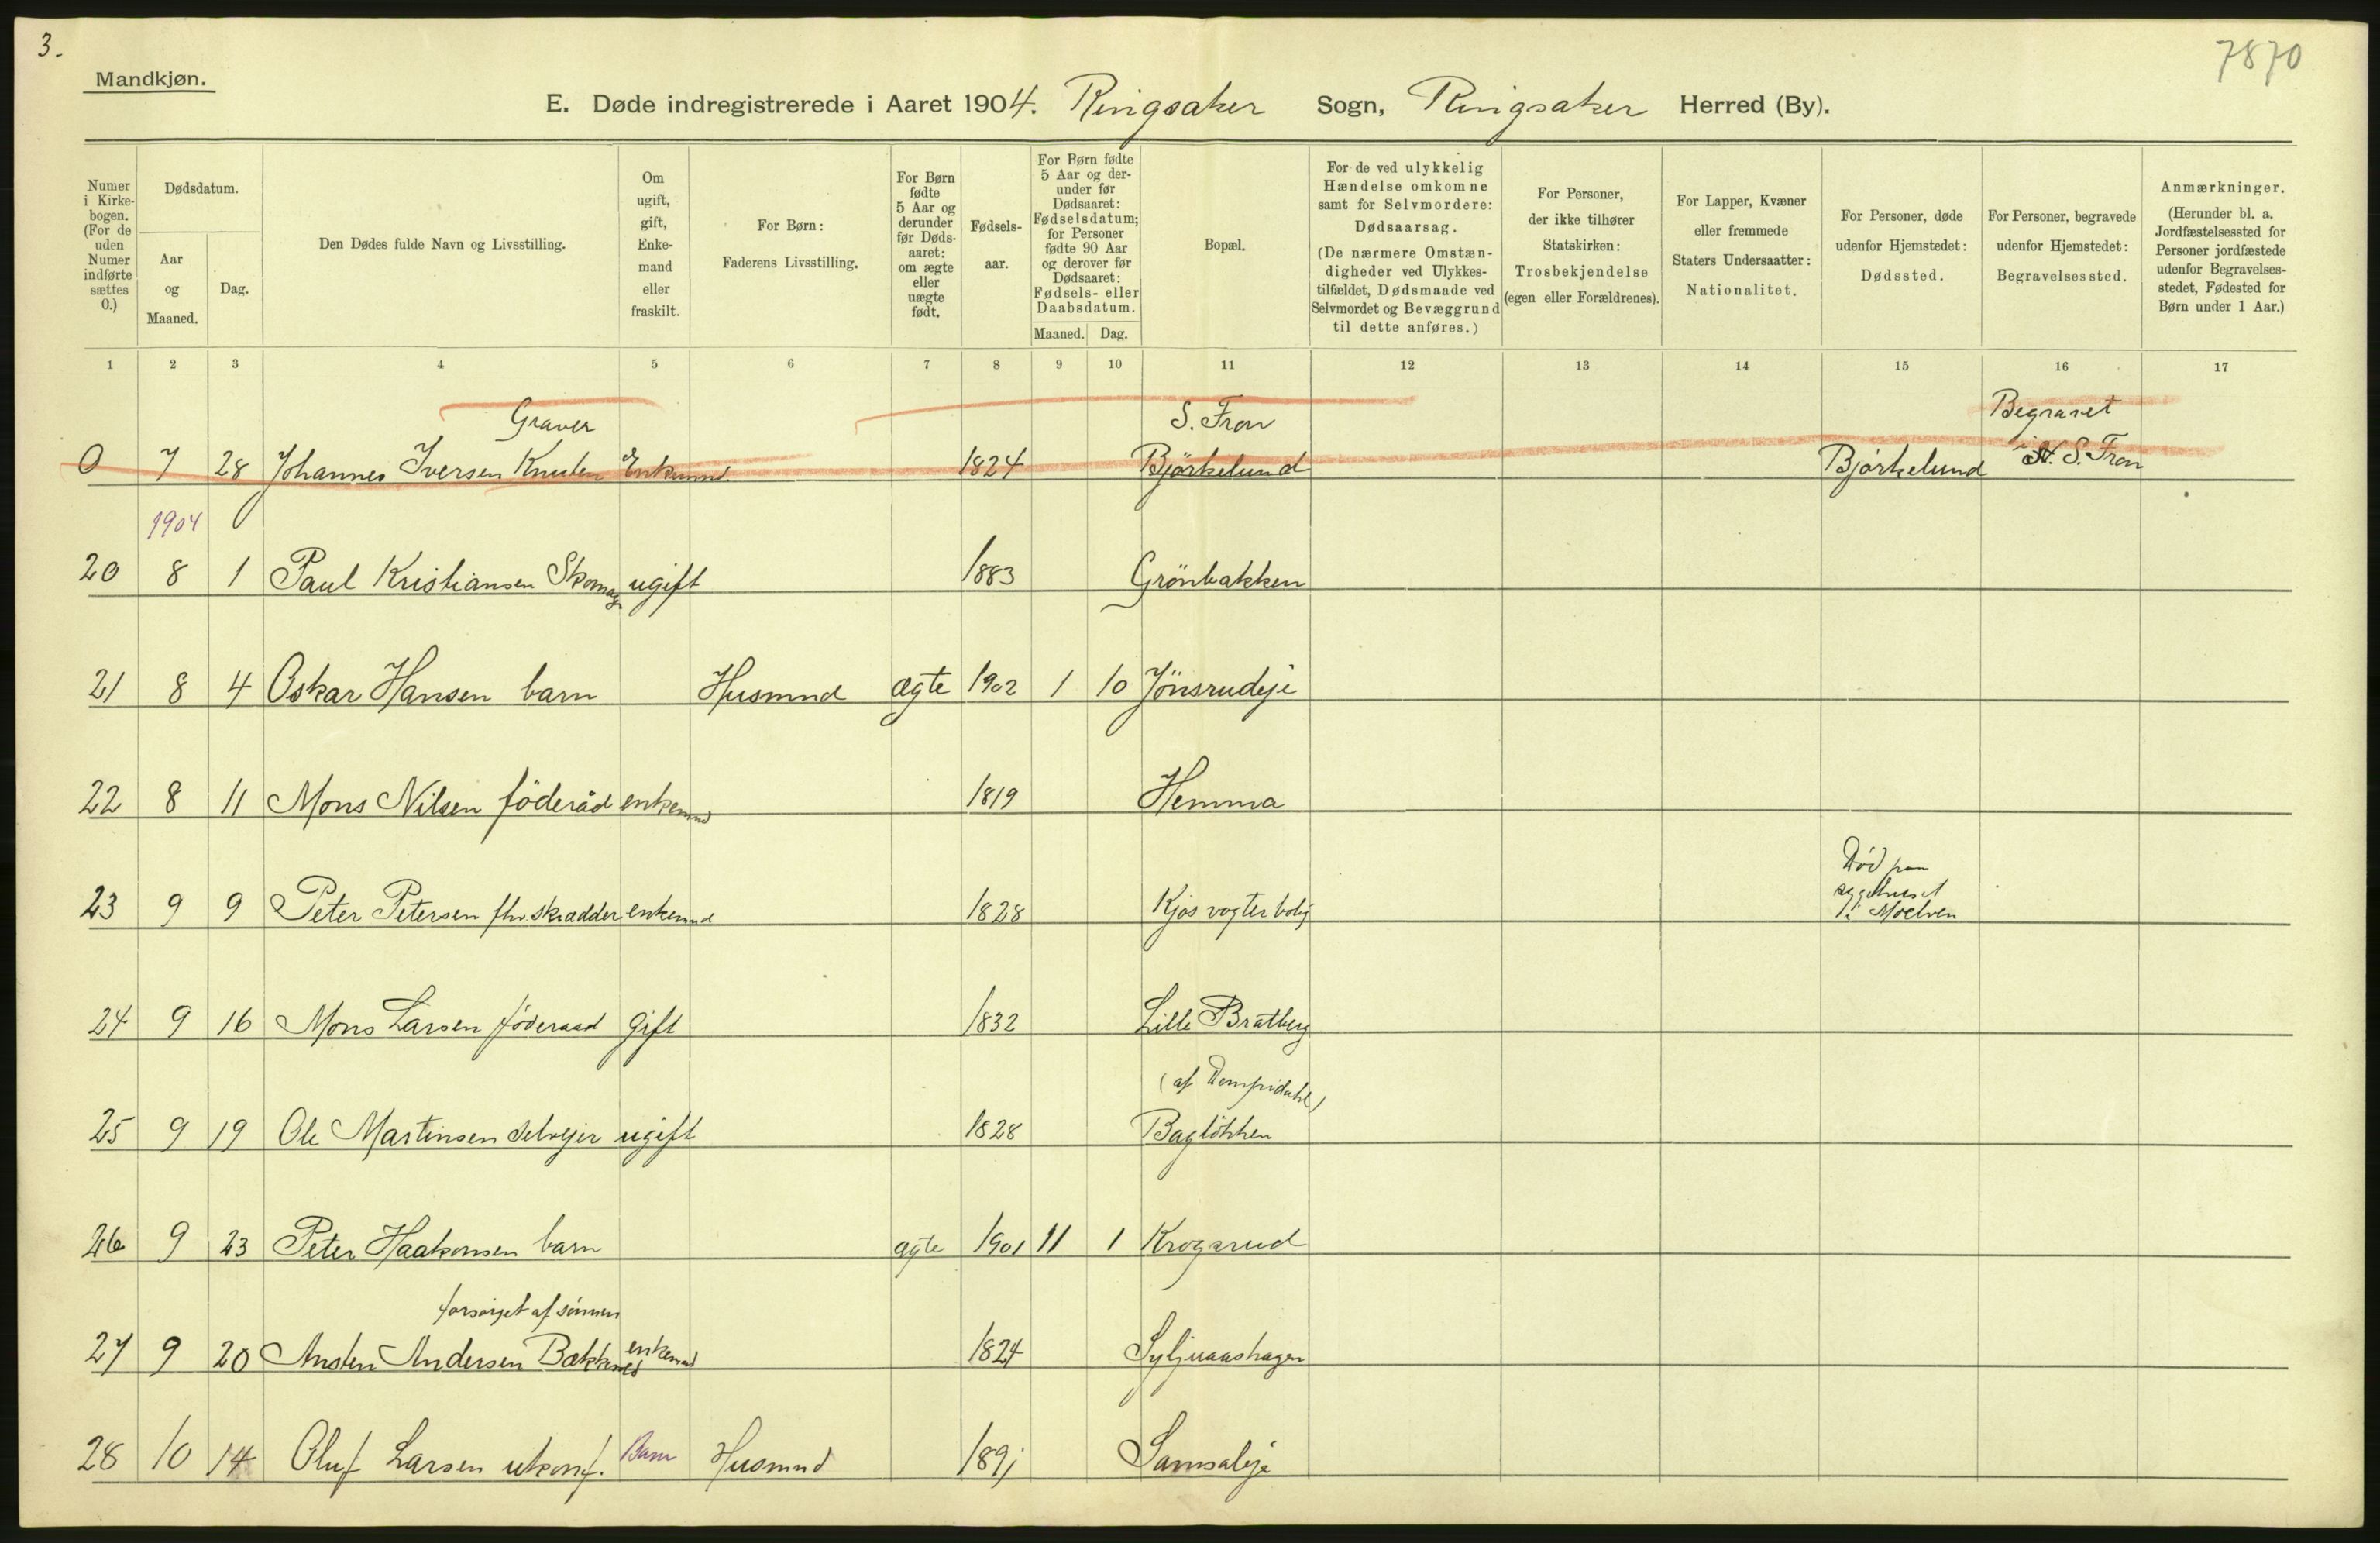 3.
7870
Mandkjøn.
E. Døde indregistrerede i Aaret 1904. Ringsaker Sogn, Ringsaker Herred (By).
Numer i Kirkebogen. (For de uden Numer indførte sættes 0.)
Dødsdatum.
Aar og Maaned.
Dag.
Den Dødes fulde Navn og Livsstilling.
Om ugift, gift, Enkemand eller fraskilt.
For Børn: Faderens Livsstilling.
For Børn fødte 5 Aar og derunder før Dødsaaret: om ægte eller uægte født.
Fødselsaar.
For Børn fødte 5 Aar og derunder før Dødsaaret: Fødselsdatum; for Personer fødte 90 Aar og derover før Dødsaaret: Fødsels- eller Daabsdatum.
Maaned. Dag.
Bopæl.
For de ved ulykkelig Hændelse omkomne samt for Selvmordere: Dødsaarsag. (De nærmere Omstændigheder ved Ulykkestilfældet, Dødsmaade ved Selvmordet og Bevæggrund til dette anføres.)
For Personer, der ikke tilhører Statskirken: Trosbekjendelse (egen eller Forældrenes).
For Lapper, Kvæner eller fremmede Staters Undersaatter: Nationalitet.
For Personer, døde udenfor Hjemstedet: Dødssted.
For Personer, begravede udenfor Hjemstedet: Begravelsessted.
Anmærkninger. (Herunder bl. a. Jordfæstelsessted for Personer jordfæstede udenfor Begravelsesstedet, Fødested for Børn under 1 Aar.)
1 2 3 4 5 6 7 8 9 10 11 12 13 14 15 16 17
Graver S. Fron Begravet
0 7 28 Johannes Iversen Enkemnd. 1824 Bjørkelund Bjørkelund i S. Fron
1904
20 8 1 Paul Kristiansen Skomag ugift 1883 Grönbakken
21 8 4 Oskar Hansen barn Husmnd ægte 1902 1 10 Jönsrudeje
22 8 11 Mons Nilsen föderåd enkemnd 1819 Hemma
Död paa
sygehuset
23 9 9 Peter Petersen fhv. skrædder enkemnd 1828 Kjos vogterbolig i Moelven
24 9 16 Mons Larsen föderaad gift 1832 Lille Bratberg
25 9 19 Ole Martinsen selvejer ugift 1828 Baglökken
26 9 23 Peter Haakonsen barn ægte 1901 11 1 Krogsrud
forsörget af sönnen
27 9 20 Ansten Andersen enkemnd 1824 Syljuaashagen
28 10 14 Oluf Larsen ukonf. Barn Husmnd 1891 Samsaleje